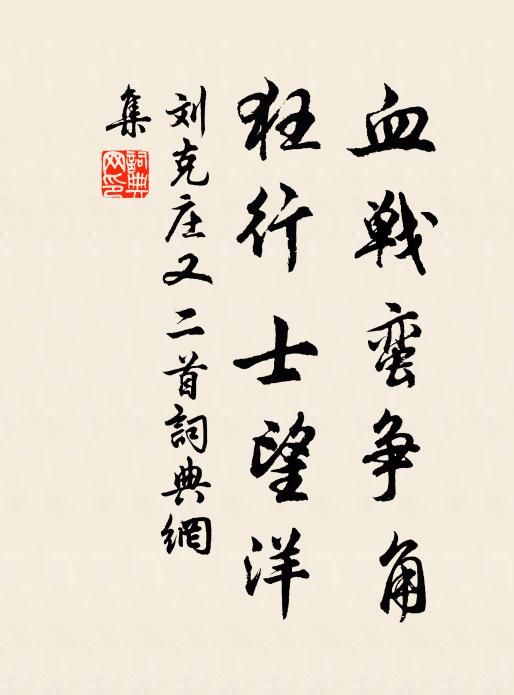 血戦蛮争角
狂行士望洋
刘克庄又二首詞典網
集
詞典网印